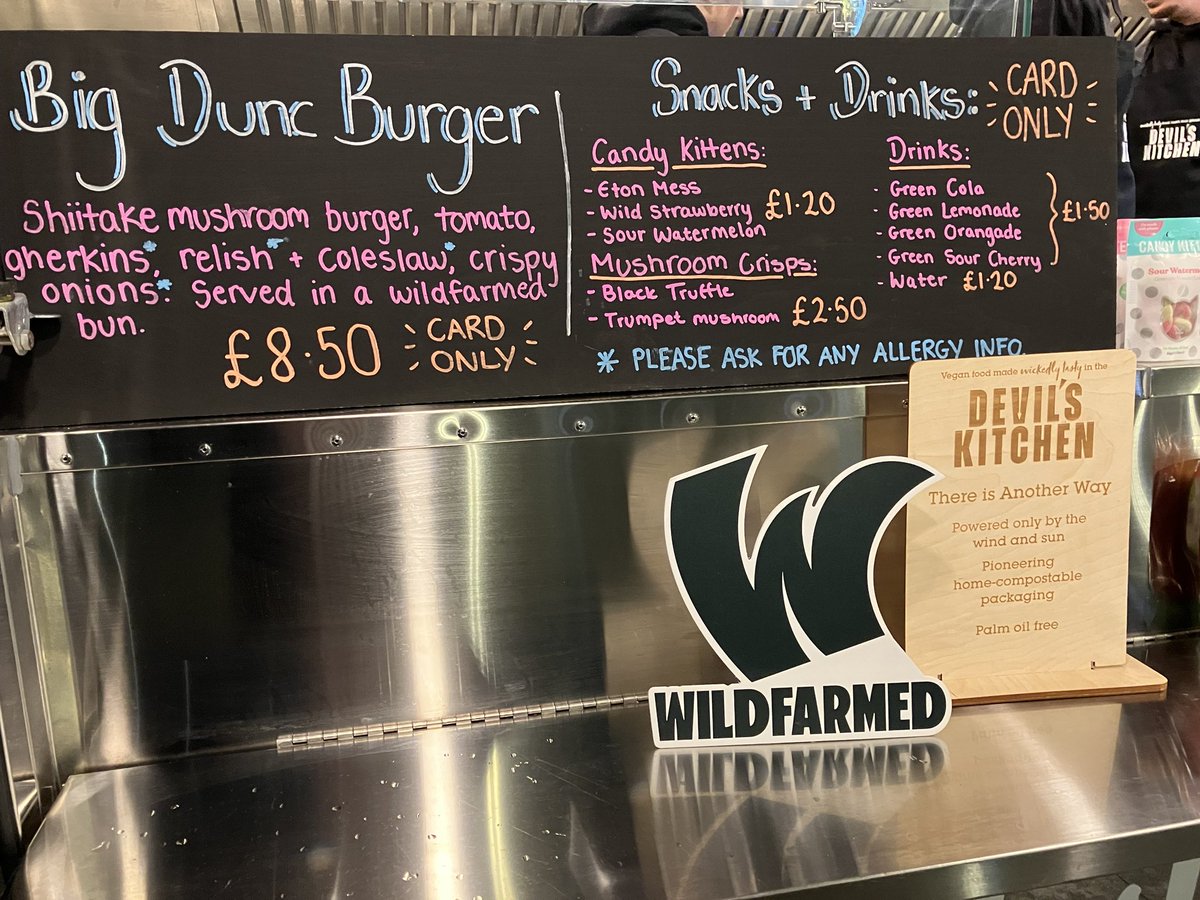 Big Dunc Burger
Shiitake mushroom burger, tomato,
gherkins*, relish* + coleslaw*, crispy
onions*. Served in a wildfarmed
bun.
£8.50
CARD
ONLY
Snacks + Drinks:
CARD
ONLY
Candy Kittens:
- Eton Mess
- Wild Strawberry £1.20
- Sour Watermelon
Mushroom Crisps:
- Black Truffle
- Trumpet mushroom £2.50
Drinks:
- Green Cola
- Green Lemonade
- Green Orangade
- Green Sour Cherry
£1.50
- Water £1.20
* PLEASE ASK FOR ANY ALLERGY INFO.
DEVIL'S
KITCHEN
CANDY KITT
Sour Waterm
Vegan food made wickedly tasty in the
DEVIL'S
KITCHEN
There is Another Way
Powered only by the
wind and sun
Pioneering
home-compostable
packaging
Palm oil free
W
WILDFARMED